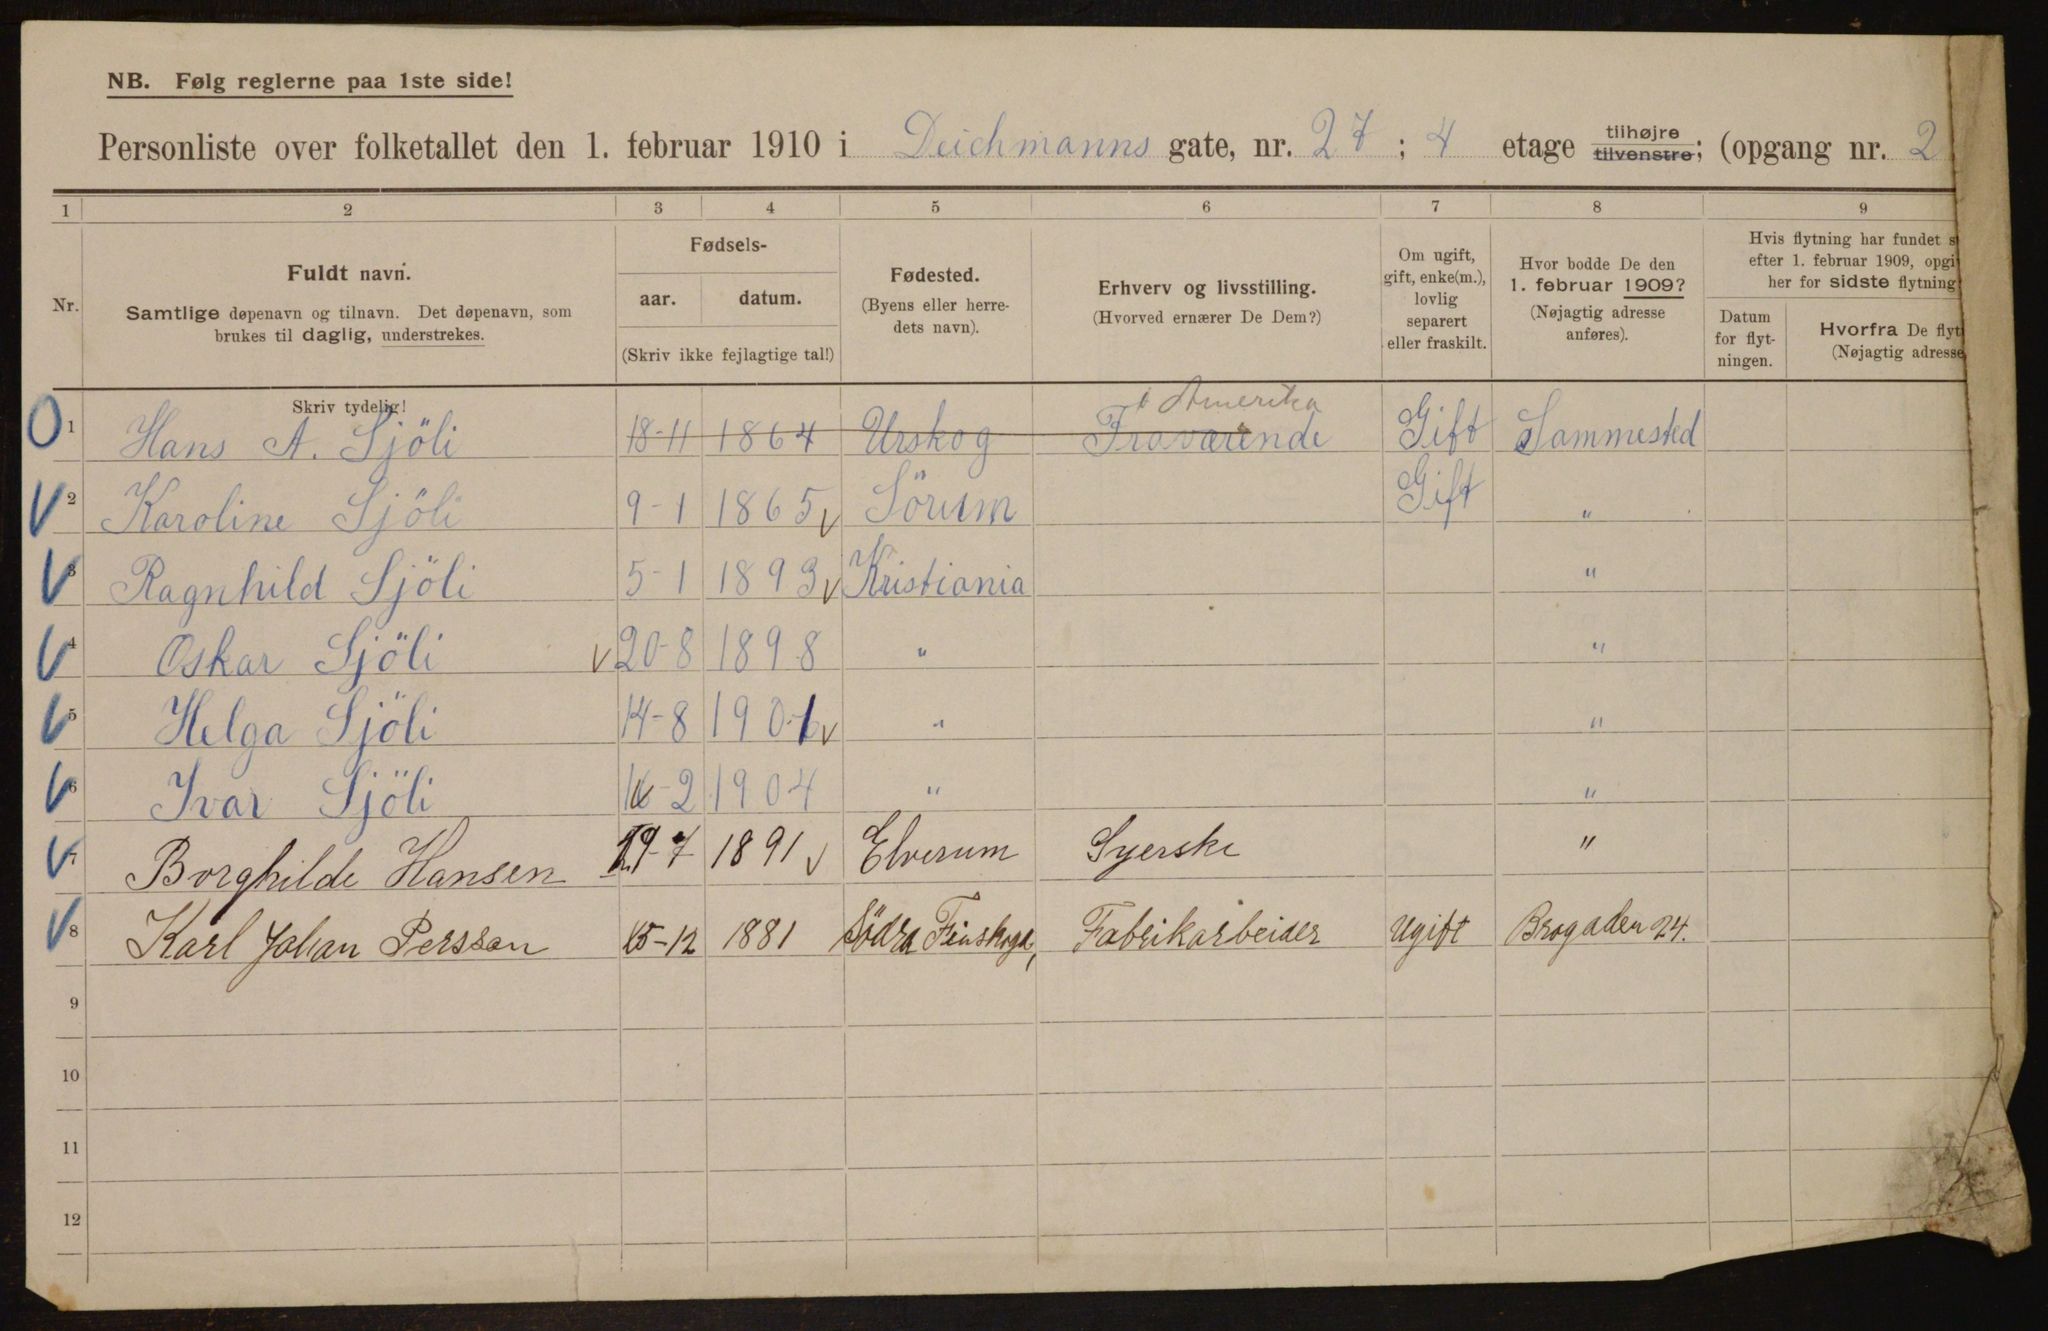 NB. Følg reglerne paa 1ste side!
Personliste over folketallet den 1. februar 1910 i Deichmanns gate, nr. 27; 4 etage tilhøjre tilvenstre; (opgang nr. 2
1 2 3 4 5 6 7 8 9
Nr.
Fuldt navn.
Samtlige døpenavn og tilnavn. Det døpenavn, som
brukes til daglig, understrekes.
Fødsels-
aar. datum.
(Skriv ikke fejlagtige tal!)
Fødested.
(Byens eller herre-
dets navn).
Erhverv og livsstilling.
(Hvorved ernærer De Dem?)
Om ugift,
gift, enke(m.),
lovlig
separert
eller fraskilt.
Hvor bodde De den
1. februar 1909?
(Nøjagtig adresse
anføres).
Hvis flytning har fundet s
efter 1. februar 1909, opgi
her for sidste flytning
Datum
for flyt-
ningen.
Hvorfra De flyt
(Nøjagtig adresse
Skriv tydelig!
Amerika
1 Hans A. Sjöli 18-11 1864 Urskog Fraværende Gift Sammested
2 Karoline Sjöli 9-1 1865 Sörum Gift "
3 Ragnhild Sjöli 5-1 1893 Kristiania "
4 Oskar Sjöli 20-8 1898 " "
5 Helga Sjöli 14-8 1901 " "
6 Ivar Sjöli -2 1904 " "
7 Borghilde Hansen 19-7 1891 Elverum Syerske "
8 Karl Johan Persson 15-12 1881 Södra Finskoga, Fabrikarbeider Ugift Brogaden 24.
9
10
11
12